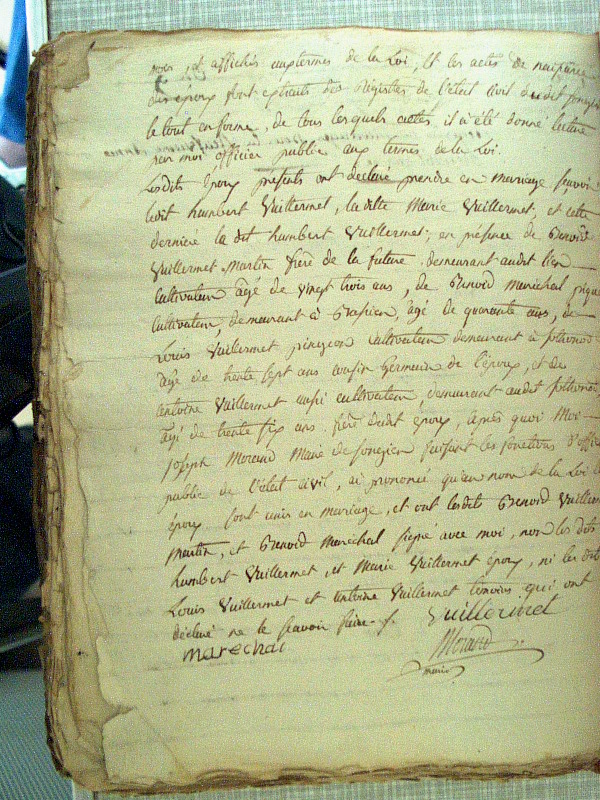 et affichés aux termes de la Loi, et les actes de naissance
des époux sont extraits des Registres de l'état Civil dudit
le tout en forme, de tous lesquels actes, il a été donné lecture
par moi officier public aux termes de la Loi.
Lesdits époux présents ont déclaré prendre en mariage savoir
ledit humbert Vuillermet, la dite Marie Vuillermet, et cette
dernière le dit humbert Vuillermet; en présence de Benoid
Vuillermet Martin frère de la future demeurant audit lieu
Cultivateur agé de vingt trois ans, de Benoid Maréchal
Cultivateur, demeurant à agé de quarante ans, de
Louis Vuillermet cultivateur demeurant à
agé de trente sept ans cousin Germain de l'époux, et de
antoine Vuillermet aussi cultivateur, demeurant audit
agé de trente six ans, frère dudit époux, après quoi Moi
joseph Morand Maire de faisant les fonctions d'
public de l'état civil, ai prononcé qu'au nom de la Loi
époux sont unis en mariage, et ont lesdits Benoid
Martin, et Benoid Maréchal signé avec moi, non les dits
humbert Vuillermet, et Marie Vuillermet époux, ni les dits
Louis Vuillermet et antoine Vuillermet témoins qui ont
déclaré ne le savoir faire
Vuillermet
marechal
Morand
maire